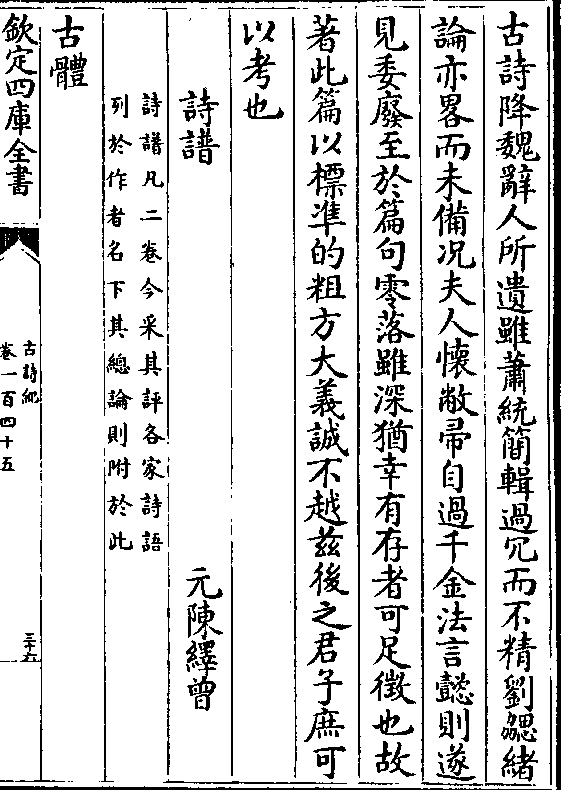 古詩降魏辭人所遺雖蕭統簡輯過冗而不精劉勰緒
論亦畧而未備况夫人懷敝帚自過千金法言懿則遂
見委廢至於篇句零落雖深猶幸有存者可足徴也故
著此篇以標準的粗方大義誠不越茲後之君子庶可
以考也
詩譜 元陳繹曾
詩譜凡二卷今采其評各家詩語
列於作者名下其總論則附於此
古體
欽定四庫全書
古詩紀
卷一百四十五
三十六